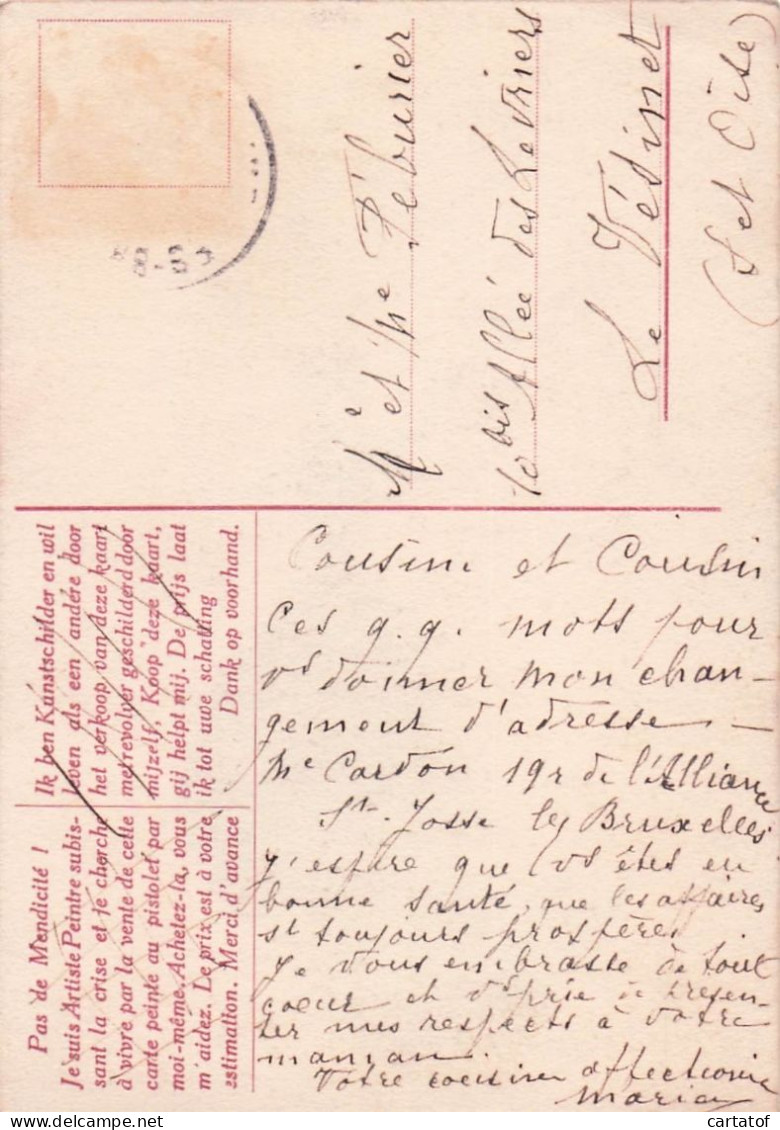 M et Me Péburier
10 bis Allée des Levriers
Le Vésinet
(S et Oise)
Ik ben Kunstschilder en wil
leven als een andere door
het verkoop van deze kaart
met revolver geschilderd door
mijzelf, Koop deze kaart,
gij helpt mij. De prijs laat
ik tot uwe schatting
Dank op voorhand.
Pas de Mendicité !
Je suis Artiste Peintre subis-
sant la crise et je cherche
à vivre par la vente de cette
carte peinte au pistolet par
moi-même. Achetez-la, vous
m'aidez. Le prix est à votre
estimation. Merci d'avance
Cousine et Cousin
Ces q.q. mots pour
vs donner mon chan-
gement d'adresse —
Me Cardon 19 r de l'Alliance
St. Josse ley Bruxelles
J'espère que vs êtes en
bonne santé, que les affaires
st toujours prospères.
Je vous embrasse de tout
coeur et vs prie de présen-
ter mes respects à votre
maman.
Votre cousine affectionnée
Maria
cartatof